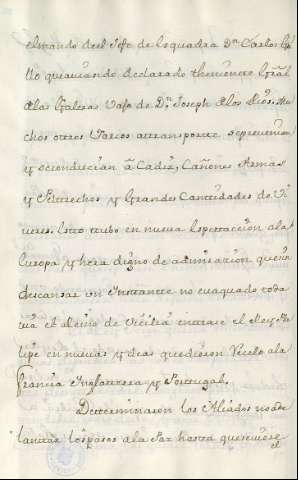 el mando del Jefe de Esquadra Dn. Carlos Gri
llo quehaviendo declarado theniente Gräl
alas Galeras Vajo de Dn. Joseph delos Rios. Mu
chos otros Varcos de transporte seprevenian
y seconducian â Cadiz, Cañones Armas
y Pertrechos y Grandes Cantidades de Vi
veres. Esto tubo en nueva Espectacion ala
Europa y hera digno de admiracion que sin
descansar un Instante no evaquado toda
via el Reino de Sicilia entrase el Rey Phe
lipe en nuevas ydeas quedieron Recelo ala
Francia Inglaterra y Portugal.
Determinaron los Aliados no ade
lantar lospasos ala Paz hasta que
el